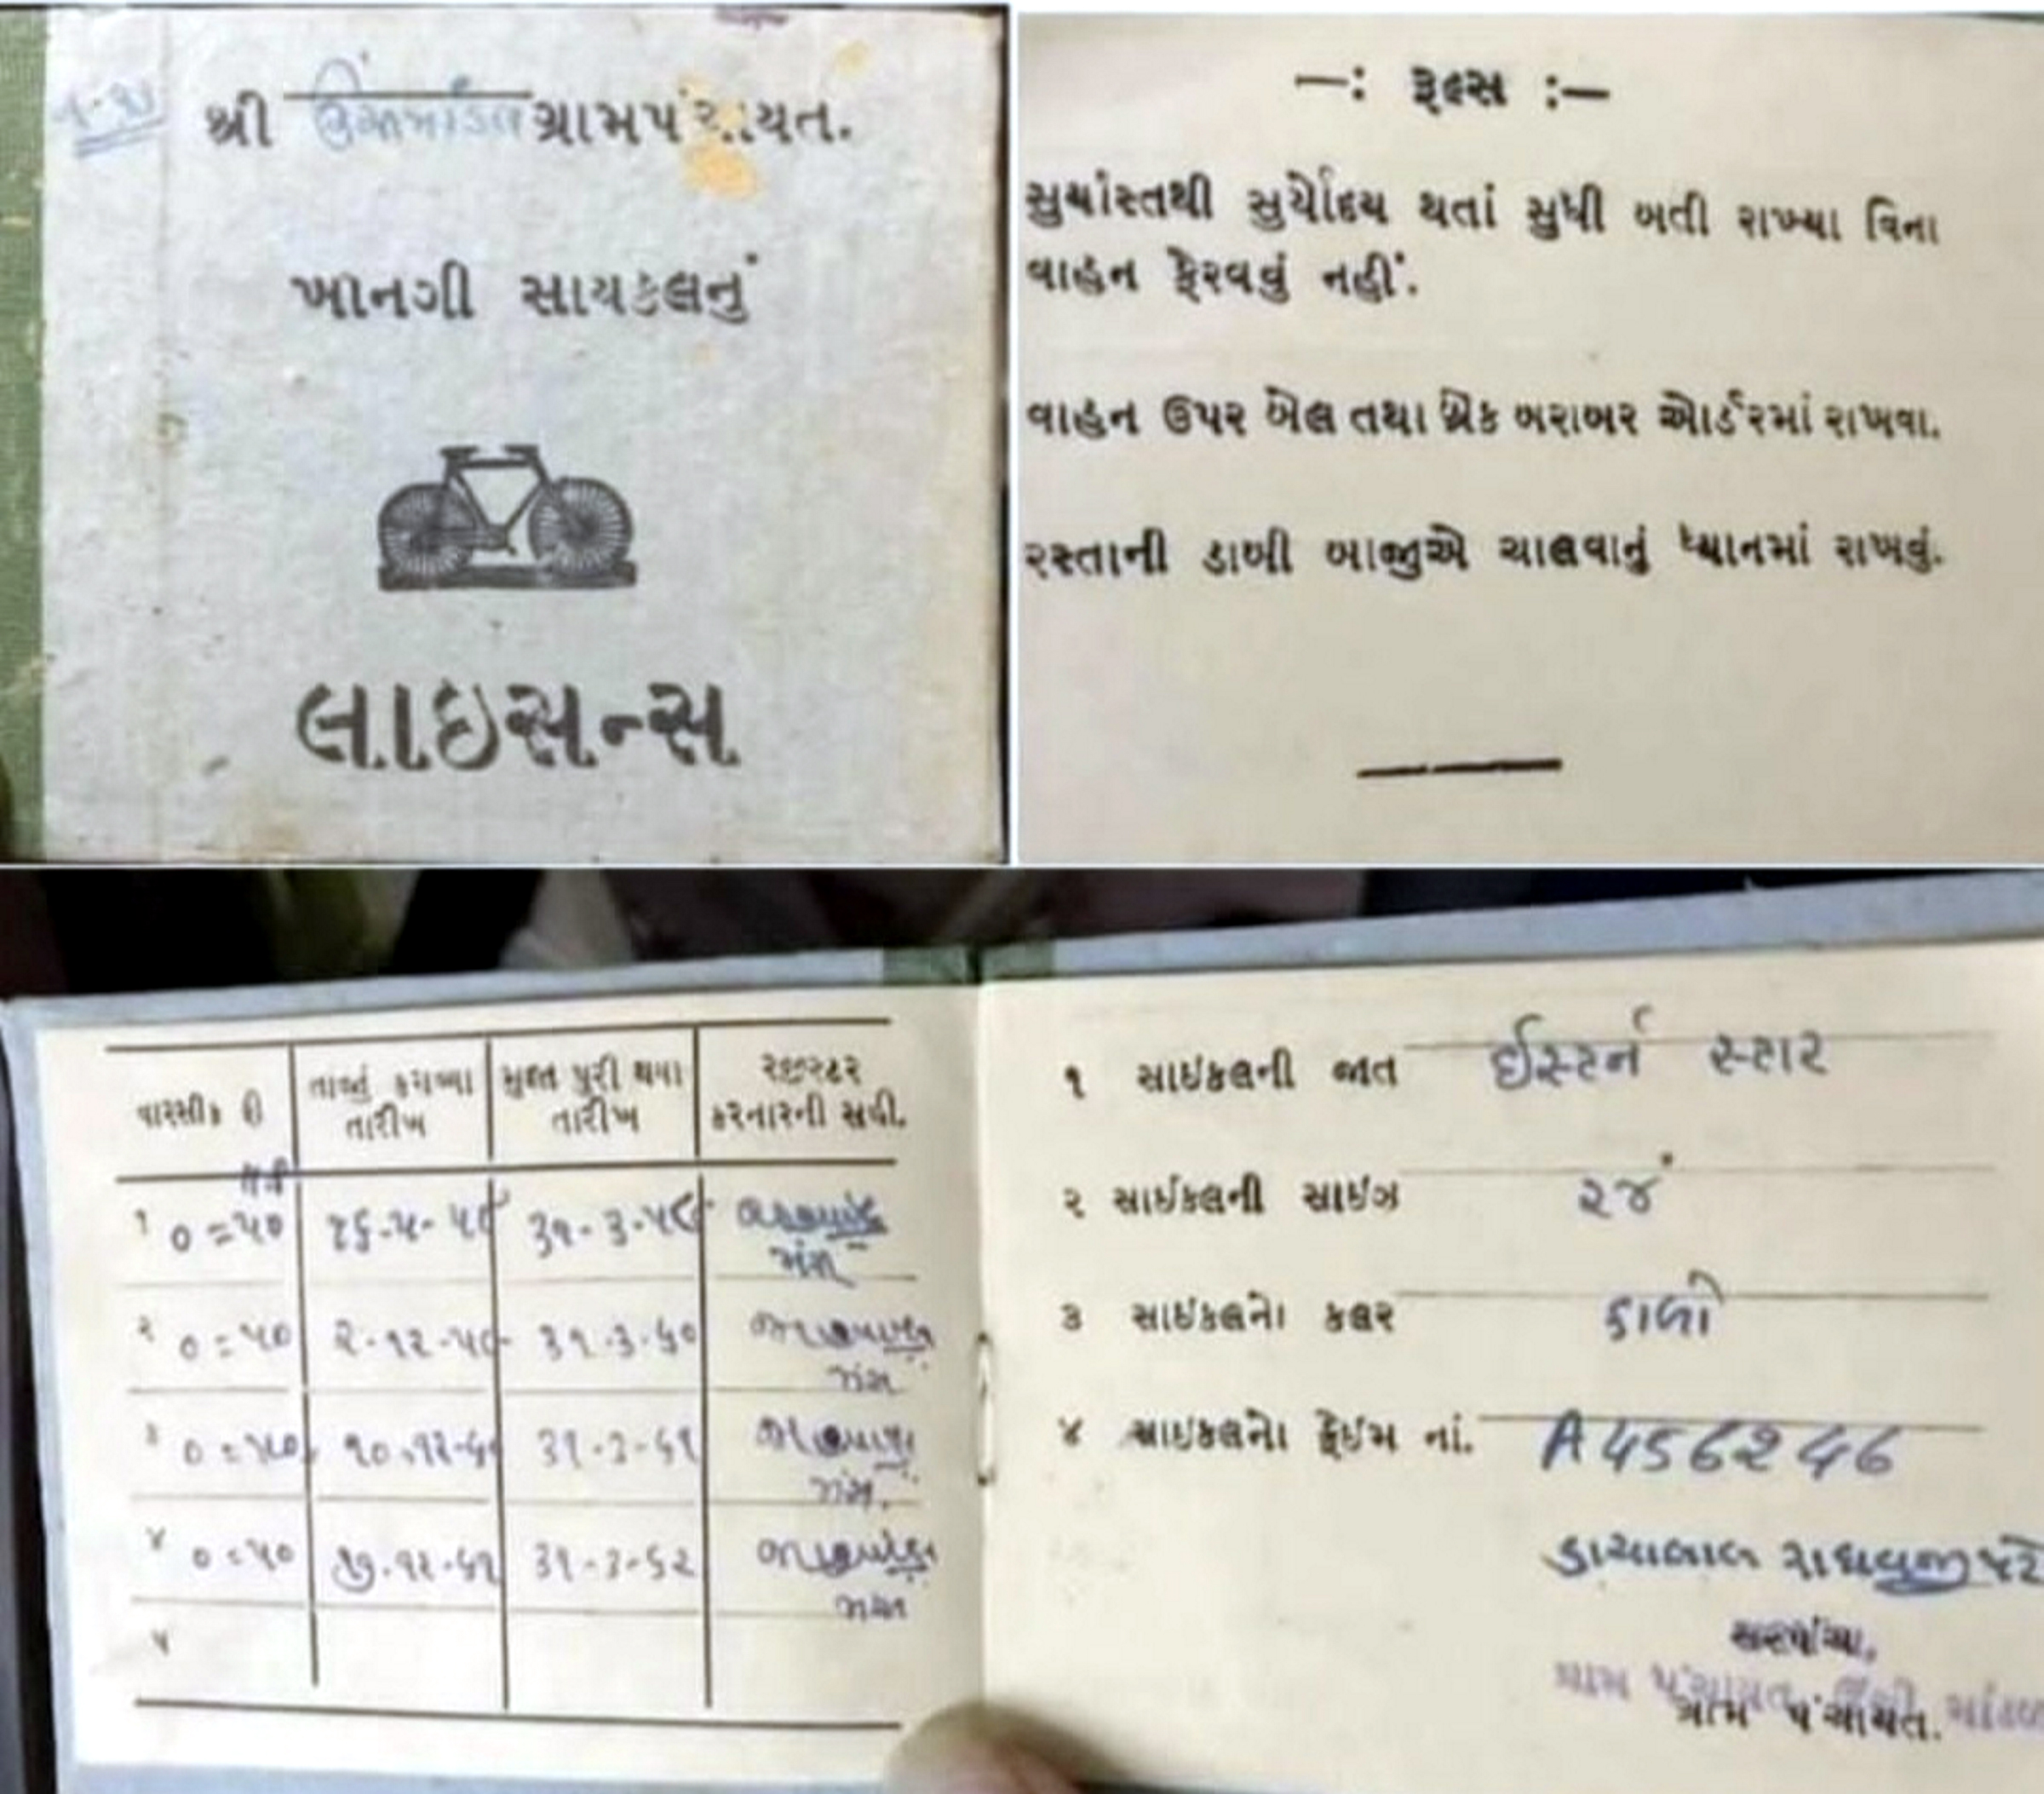 શ્રી ગ્રામપંચાયત.
ખાનગી સાયકલનું
લાઇસન્સ
—: રૂલ્સ :—
સુર્યાસ્તથી સુર્યોદય થતાં સુધી બતી રાખ્યા વિના
વાહન ફેરવવું નહીં.
વાહન ઉપર બેલ તથા બ્રેક બરાબર ઓર્ડરમાં રાખવા.
રસ્તાની ડાબી બાજુએ ચાલવાનું ધ્યાનમાં રાખવું.
વારસીક ફી
તાજું કરાવ્યા તારીખ
મુદત પુરી થયા તારીખ
રજીસ્ટર કરનારની સહી.
૧ ૦=૫૦ ૩૧-૩-૫૯
૨ ૦=૫૦ ૨-૧૨-૫૯ ૩૧-૩-૬૦
૩ ૦=૫૦ ૩૧-૩-૬૧
૪ ૦=૫૦ ૭-૧૨-૬૧ ૩૧-૩-૬૨
૫
૧ સાઇકલની જાત ઈસ્ટર્ન સ્ટાર
૨ સાઇકલની સાઇઝ ૨૪
૩ સાઇકલનો કલર કાળો
૪ સાઇકલનો ફ્રેઇમ નાં. A456246
સરપંચ,
ગ્રામ પંચાયત.